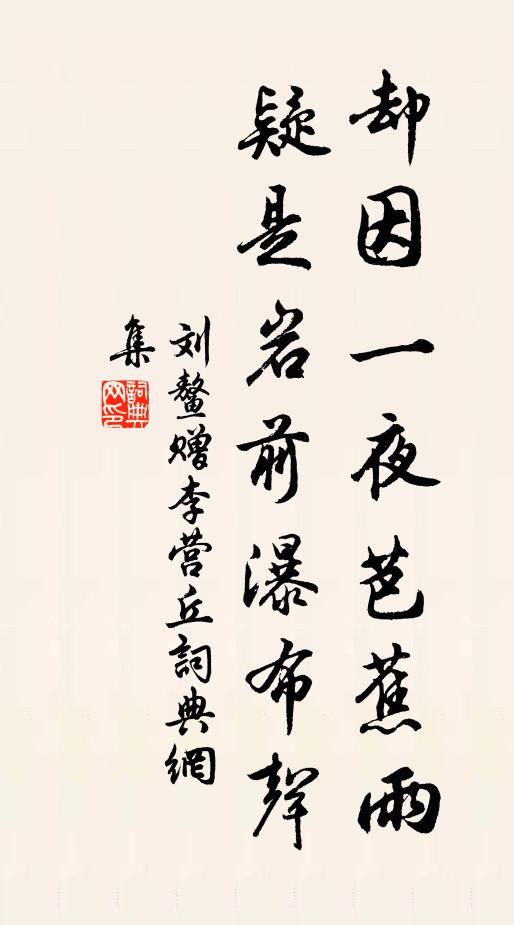 却因一夜芭蕉雨
疑是岩前瀑布聲
刘鰲赠李营丘詞典網
集
詞典网印